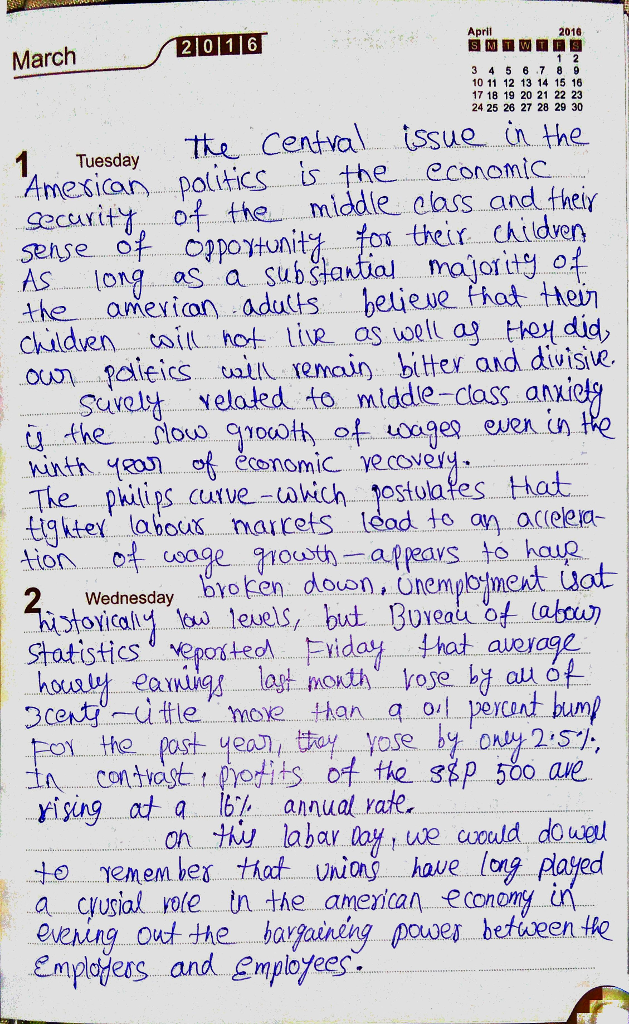 March
2016
April 2016
S M T W T F S
1 2
3 4 5 6 7 8 9
10 11 12 13 14 15 16
17 18 19 20 21 22 23
24 25 26 27 28 29 30
1 Tuesday The Central issue in the
American politics is the economic
security of the middle class and their
sense of opportunity for their children.
As long as a substantial majority of
the american adults believe that their
children will not live as well as they did,
our politics will remain bitter and divisive.
Surely related to middle-class anxiety
is the slow growth of wages even in the
ninth year of economic recovery.
The philips curve - which postulates that
tighter labour markets lead to an accelera-
tion of wage growth - appears to have
broken down. Unemployment is at
2 Wednesday
historically low levels, but Bureau of Labour
Statistics reported Friday that average
hourly earnings last month rose by all of
3 cents - little more than a 0.1 percent bump
For the past year, they rose by only 2.5%.
In contrast, profits of the S&P 500 are
rising at a 16% annual rate.
on this labar Day, we would do well
to remember that unions have long played
a crusial role in the american economy in
evening out the bargaining power between the
Employers and Employees.